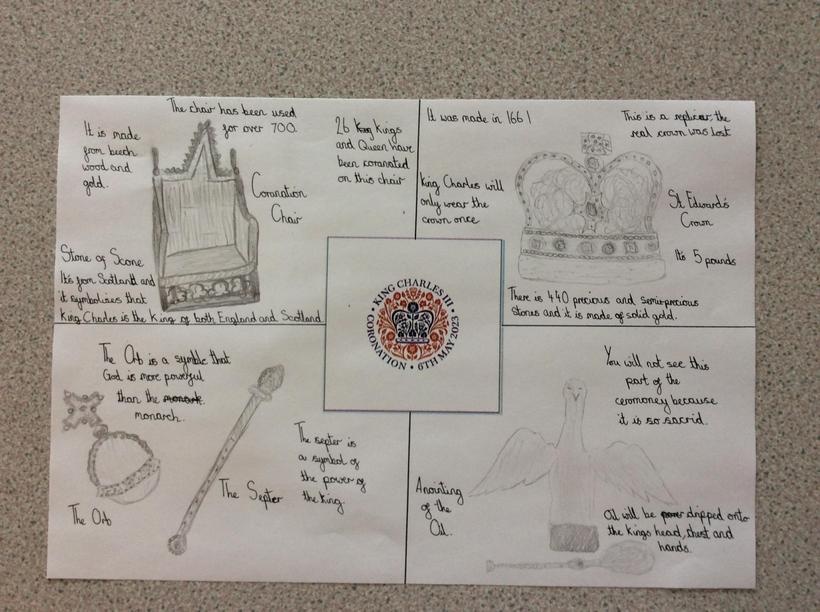 The chair has been used
for over 700.
It is made
from beech
wood and
gold.
26 Kings
and Queen have
been coranated
on this chair
Coronation
Chair
Stone of Scone
It's from Scotland and
it symbolises that
King Charles is the King of both England and Scotland.
It was made in 1661
This is a replica the
real crown was lost
King Charles will
only wear the
crown once
St. Edward's
Crown
It's 5 pounds
There is 440 precious and semi-precious
stones and it is made of solid gold.
KING CHARLES III
CORONATION • 6TH MAY 2023
The Orb is a symble that
God is more powerful
than the monark
monarch.
The Orb
The Septer
The septer is
a symbol of
the power of
the king.
You will not see this
part of the
ceromoney because
it is so sacrid.
Anointing
of the
Oil.
Oil will be dripped onto
the kings head, chest and
hands.